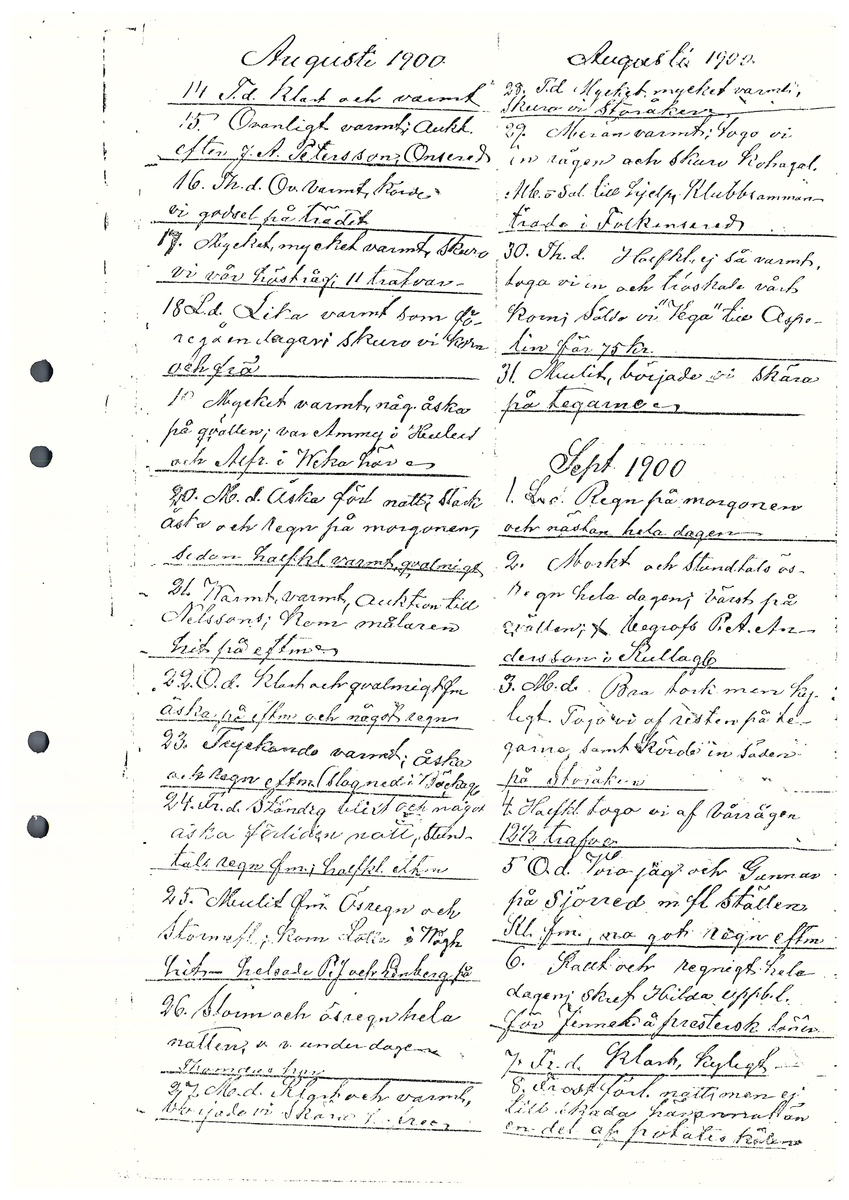 Augusti 1900
14 T.d. Klart och varmt
15. Ovanligt varmt; Aukt.
efter J. A. Petersson, Onsered
16. Th.d. Ov. varmt, körde
vi gödsel på trädet
17. Mycket, mycket varmt, skuro
vi vår höstråg; 11 trafvar
18 L.d. Lika varmt som fö-
regående dagar; skuro vi korn
och frö
19 Mycket varmt, någ. åska
på qvällen; var Ammy i
och Alfr. i
20. M.d. Åska förl natt; stark
åska och regn på morgonen,
sedan halfkl. varmt, qvalmigt
21. Warmt, varmt, auktion till
Nelssons; kom målaren
hit på eftm
22. O.d. Klart och qvalmigt fm
åska på eftm och något regn
23. Tryckande varmt; åska
och regn eftm (slog ned i Bäckag
24. Fr.d. Ständig blixt och något
åska förliden natt, stund-
tals regn fm; halfkl. eftm
25. Mulit fm Ösregn och
storm efl; kom Lotta i
hit helsade P.J och Lönberg på
26. Storm och ösregn hela
natten, o. v. under dagen
Thomaus har
27. M.d. Klart och varmt,
började vi skära
Augusti 1900.
28. T.d. Mycket, mycket varmt,
skuro vi Storåkern
29. Meran varmt; togo vi
in rågen och skuro Kohagal.
Mb. o Sal. till hjelp, Klubbsamman
träde i Folkensered
30. Th.d. Halfkl, ej så varmt,
togo vi in och tröskade vårt
korn; Sålde vi "Vega" till Aspe-
lin för 75 kr.
31. Mulit, började vi skära
på tegarne
Sept 1900
1. L.d. Regn på morgonen
och nästan hela dagen
2. Morkt och stundtals ös-
regn hela dagen; värst på
qvällen; begrofs P. A. An-
dersson i Kullag
3. M.d. Bra tork men ky-
ligt. Togo vi af resten på te-
garne samt körde in säden
på Storåken
4. Halfkl. togo vi af vårrågen
12½ trafvar
5 O.d. Voro jag och Gunnar
på Sjöred m fl ställen
Kl. fm, något regn eftm
6. Kallt och regnigt hela
dagen; skref Hilda uppbl.
för Jennek å prestersk. lönen
7. Fr.d. Klart, kyligt
8. Frost förl. natt; men ej
till skada härannat än
en del af potatis kålen